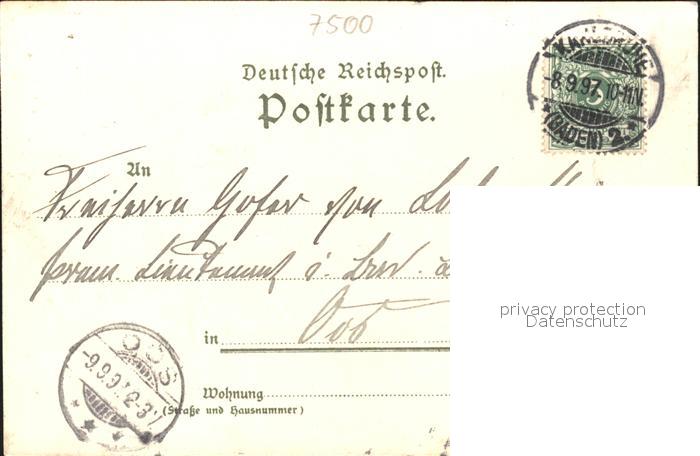 7500
Deutsche Reichspost.
Postkarte.
KARLSRUHE
-8.9.97. 10-11N.
(BADEN) 2.
An
Freiherrn Gofer von
Lieutenant
privacy protection
Datenschutz
in Oos
OOS
-9.9.97. 2-3V.
Wohnung
(Straße und Hausnummer)